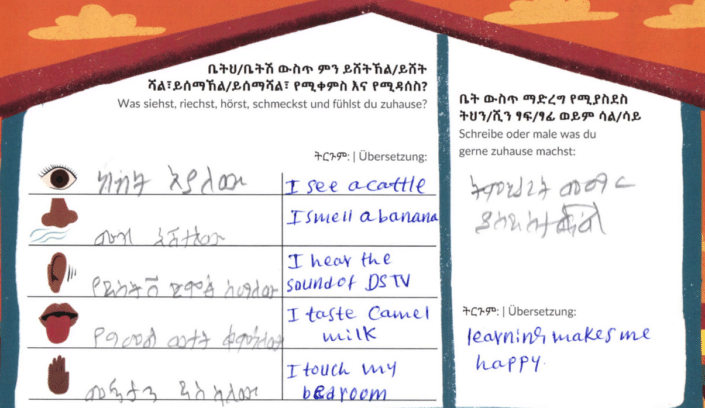 ቤትህ/ቤትሽ ውስጥ ምን ይሸትኸል/ይሸት
ሻል፣ይሰማኸል/ይሰማሻል፣ የሚቀምስ እና የሚዳሰስ?
Was siehst, riechst, hörst, schmeckst und fühlst du zuhause?
ትርጉም: | Übersetzung:
ከብት እያለው
I see a cattle
I smell a banana
I hear the
sound of DSTV
I taste Camel
milk
የግመል ወተት
I touch my
bedroom
ቤት ውስጥ ማድረግ የሚያስደስ
ትህን/ሺን ፃፍ/ፃፊ ወይም ሳል/ሳይ
Schreibe oder male was du
gerne zuhause machst:
ትምህርት መማር
ትርጉም: | Übersetzung:
learning makes me
happy.